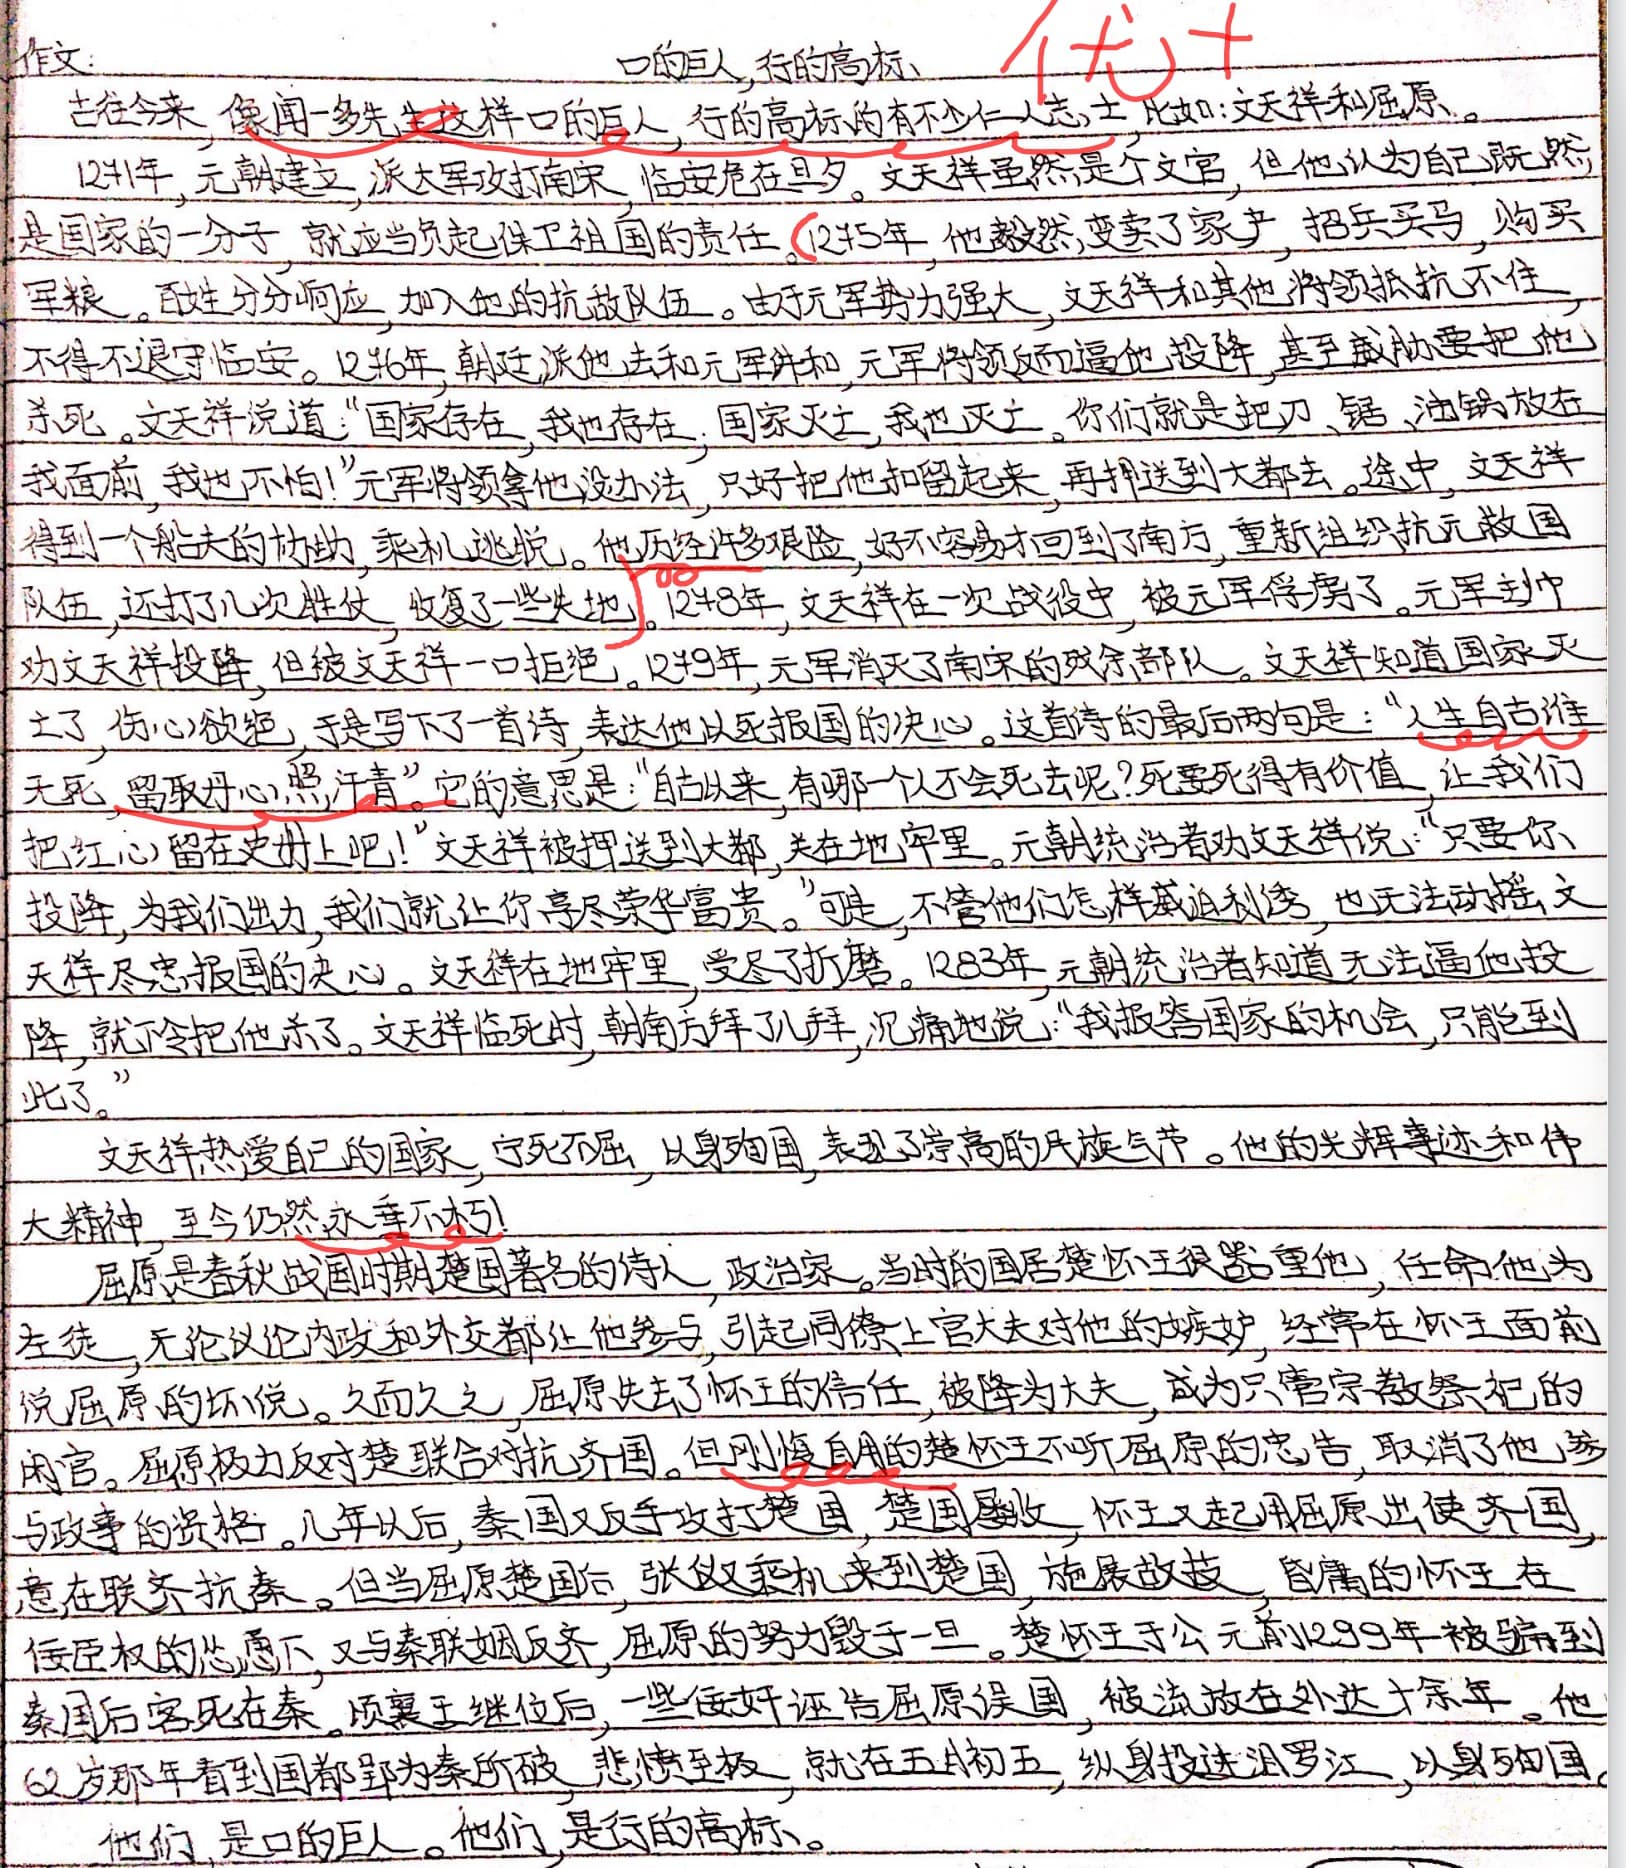 优+
作文: 口的巨人,行的高标、
古往今来,像闻一多先生这样口的巨人,行的高标的有不少仁人志士,比如:文天祥和屈原。
1271年,元朝建立,派大军攻打南宋,临安危在旦夕。文天祥虽然是个文官,但他认为自己既然
是国家的一分子,就应当负起保卫祖国的责任。1275年,他毅然变卖了家产,招兵买马,购买
军粮。百姓分分响应,加入他的抗敌队伍。由于元军势力强大,文天祥和其他将领抵抗不住,
不得不退守临安。1276年,朝廷派他去和元军讲和,元军将领反而逼他投降,甚至威胁要把他
杀死。文天祥说道:“国家存在,我也存在,国家灭亡,我也灭亡。你们就是把刀、锯、油锅放在
我面前,我也不怕!”元军将领拿他没办法,只好把他扣留起来,再押送到大都去。途中,文天祥
得到一个船夫的协助,乘机逃脱。他历经许多艰险,好不容易才回到了南方,重新组织抗元救国
队伍,还打了几次胜仗,收复了一些失地。1278年,文天祥在一次战役中,被元军俘虏了。元军主帅
劝文天祥投降,但被文天祥一口拒绝。1279年,元军消灭了南宋的残余部队。文天祥知道国家灭
亡了,伤心欲绝,于是写下了一首诗,表达他以死报国的决心。这首诗的最后两句是:“人生自古谁
无死,留取丹心照汗青”。它的意思是:“自古以来,有哪一个人不会死去呢?死要死得有价值,让我们
把红心留在史册上吧!”文天祥被押送到大都,关在地牢里。元朝统治者劝文天祥说:“只要你
投降,为我们出力,我们就让你享尽荣华富贵。”可是,不管他们怎样威迫利诱,也无法动摇文
天祥尽忠报国的决心。文天祥在地牢里,受尽了折磨。1283年,元朝统治者知道无法逼他投
降,就下令把他杀了。文天祥临死时,朝南方拜了几拜,沉痛地说:“我报答国家的机会,只能到
此了。”
文天祥热爱自己的国家,宁死不屈,以身殉国,表现了崇高的民族气节。他的光辉事迹和伟
大精神,至今仍然永垂不朽!
屈原是春秋战国时期楚国著名的诗人,政治家。当时的国君楚怀王很器重他,任命他为
左徒,无论议论内政和外交都让他参与,引起同僚上官大夫对他的嫉妒,经常在怀王面前
说屈原的坏说。久而久之,屈原失去了怀王的信任,被降为大夫,成为只管宗教祭祀的
闲官。屈原极力反对楚联合对抗齐国。但刚愎自用的楚怀王不听屈原的忠告,取消了他参
与政事的资格。几年以后,秦国又反手攻打楚国,楚国屡败,怀王又起用屈原出使齐国,
意在联齐抗秦。但当屈原楚国后,张仪又乘机来到楚国,施展故技,昏庸的怀王在
佞臣权的怂恿下,又与秦联姻反齐,屈原的努力毁于一旦。楚怀王于公元前1299年被骗到
秦国后客死在秦。顷襄王继位后,一些佞奸诬告屈原误国,被流放在外达十余年。他
62岁那年看到国都郢为秦所破,悲愤至极,就在五月初五,纵身投进汨罗江,以身殉国。
他们,是口的巨人。他们,是行的高标、。